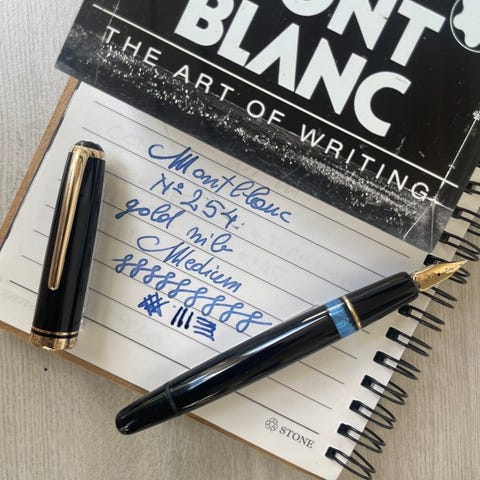 MONT
BLANC
THE ART OF WRITING
Montblanc
N° 254.
gold nib
Medium
888888888
STONE